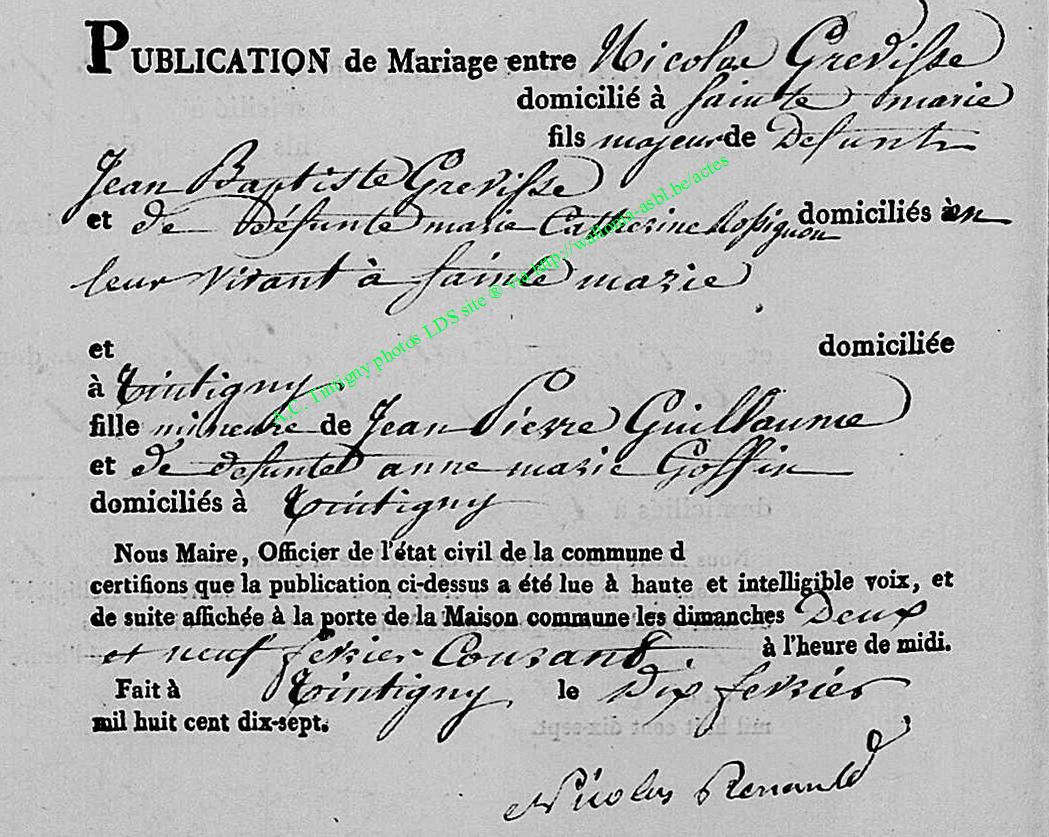 PUBLICATION de Mariage entre Nicolas Grevisse
domicilié à Sainte marie
fils majeur de Defunt
Jean Baptiste Grevisse
et de Défunte marie Catherine Rossignon domiciliés en
leur vivant à Sainte marie
et domiciliée
à Tintigny
fille mineure de Jean Pierre Guillaume
et de defunte anne marie Goffin
domiciliés à Tintigny
Nous Maire, Officier de l'état civil de la commune d
certifions que la publication ci-dessus a été lue à haute et intelligible voix, et
de suite affichée à la porte de la Maison commune les dimanches Deux
et neuf fevrier Courant à l'heure de midi.
Fait à Tintigny le Dix fevrier
mil huit cent dix-sept.
Nicolas Renauld
A.C. Tintigny photos LDS site ® via http://wallonia-asbl.be/actes